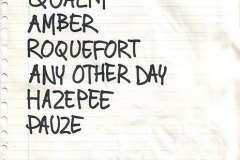 QUALM
AMBER
ROQUEFORT
ANY OTHER DAY
HAZEPEE
PAUZE